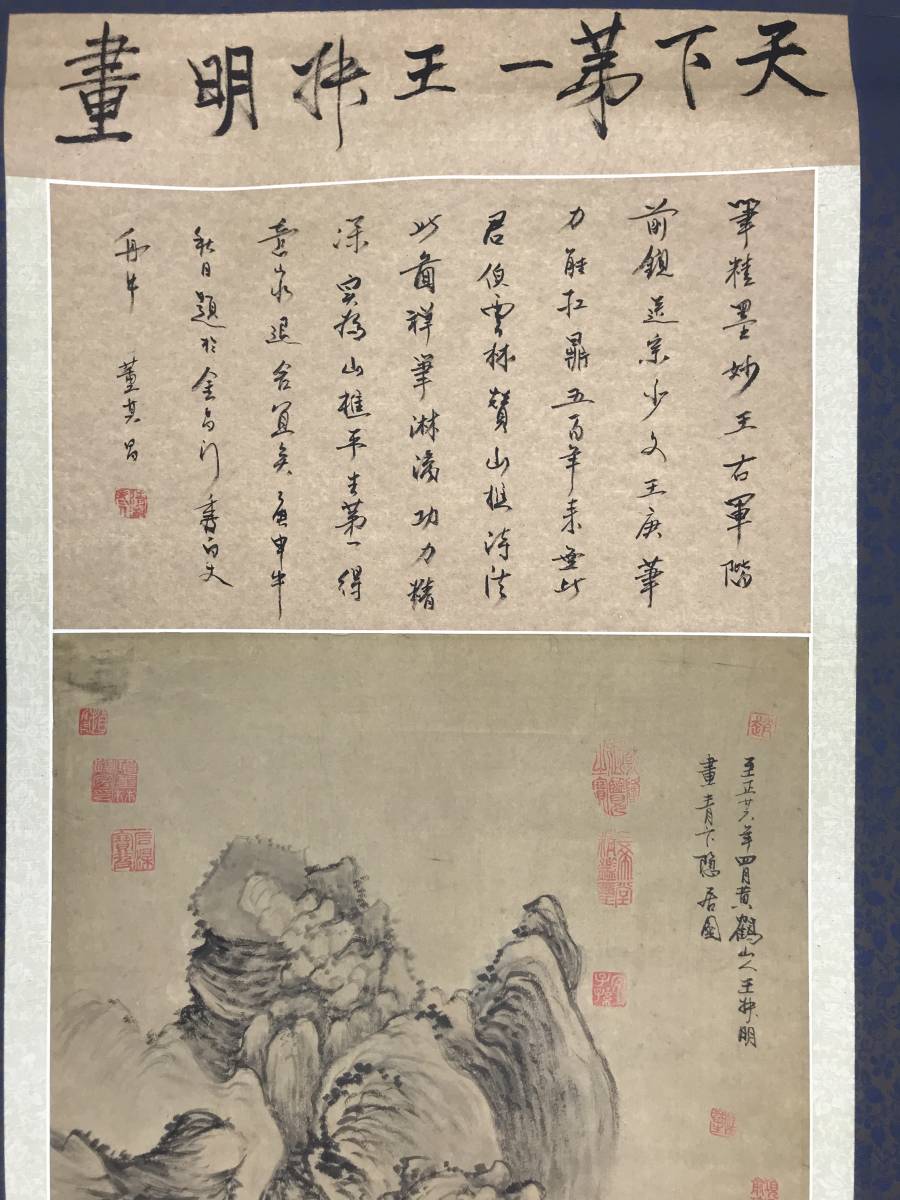 天下苐一王叔明畫
筆精墨妙王右軍階
前鎖送宗少文王庚筆
力能扛鼎五百年来無此
君倪雲林贊山樵詩法
此圖禅筆淋漓功力精
深実為山樵平生苐一得
意 退舍宜矣庚申中
秋日題於金昌門季白丈
舟中 董其昌
至正廿六年四月黄鶴山人王叔明
畫青卞隠居圖